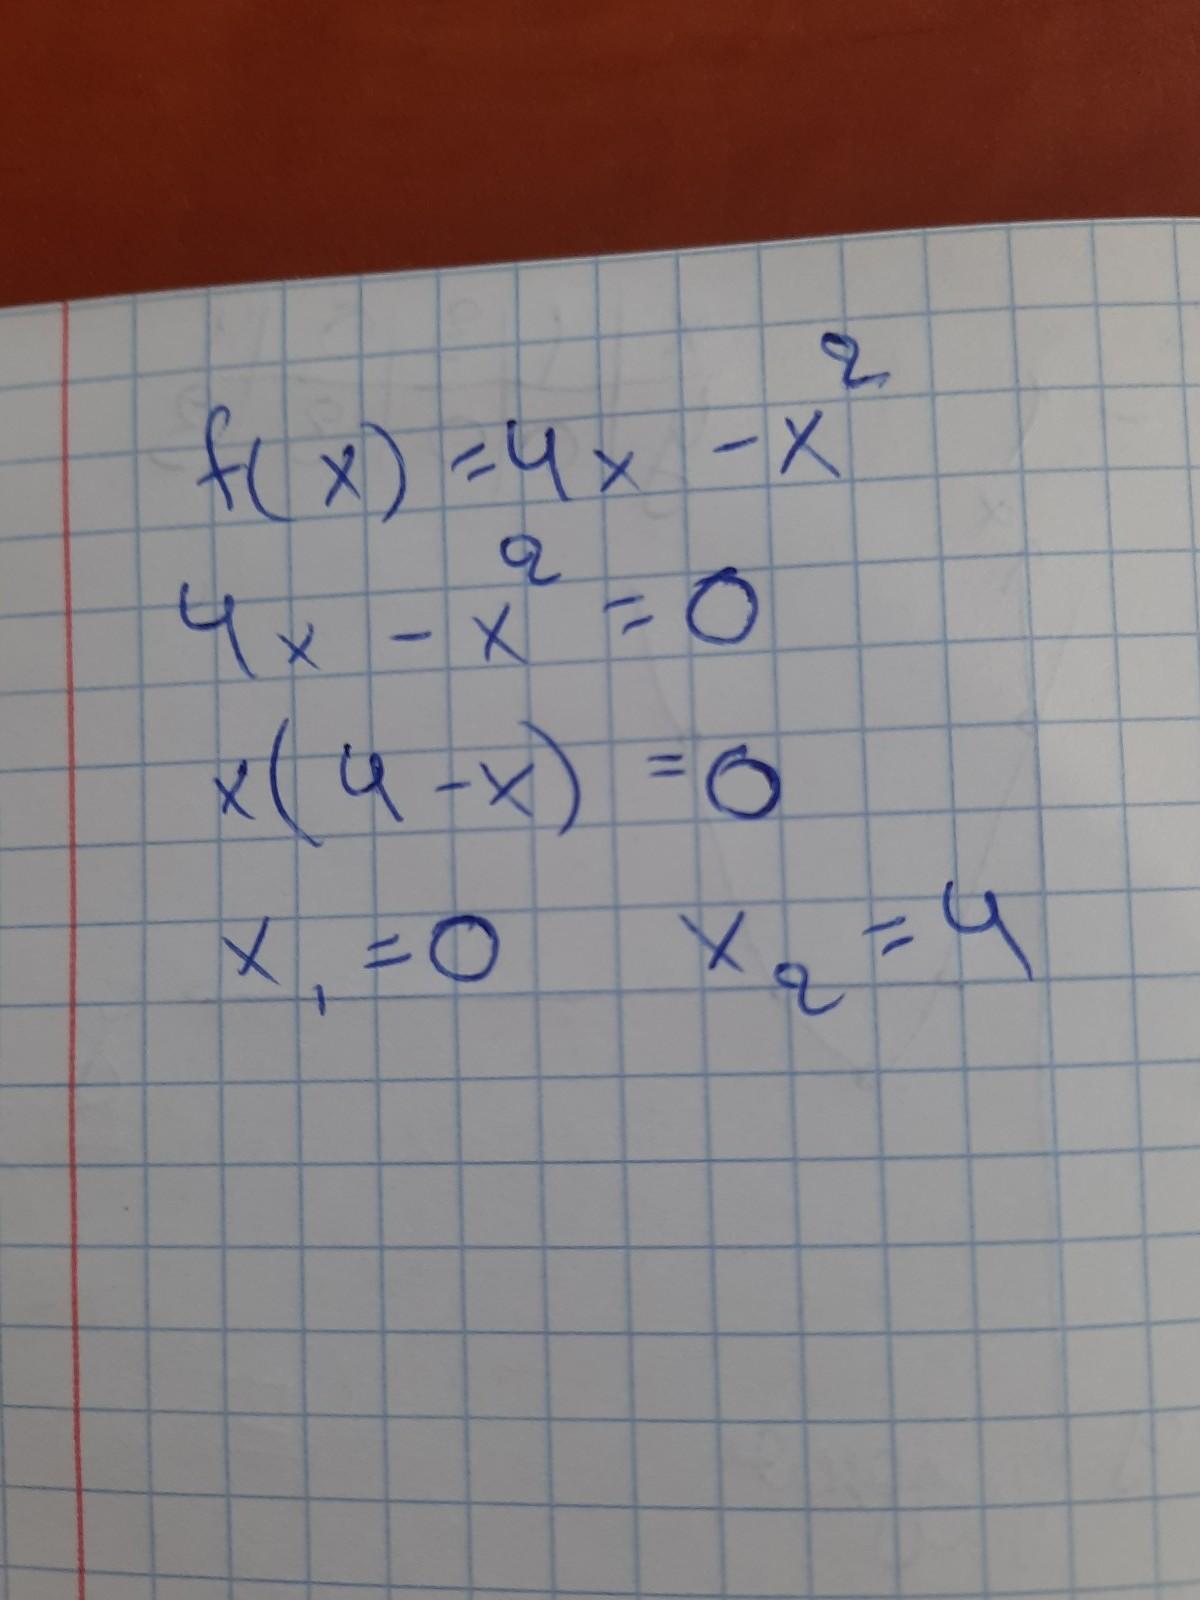 f(x) = 4x - x²
4x - x² = 0
x(4 - x) = 0
x₁ = 0 x₂ = 4